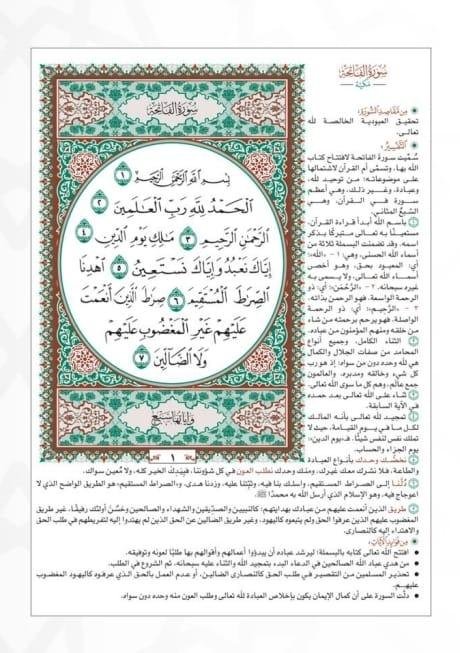 سورة الفاتحة
مكية
من مقاصد السورة:
تحقيق العبودية الخالصة لله
تعالى.
التفسير:
سُمِّيت سورة الفاتحة لافتتاح كتاب
الله بها، وتسمى أم القرآن لاشتمالها
على موضوعاته؛ من توحيد لله،
وعبادة، وغير ذلك، وهي أعظم
سورة في القرآن، وهي
السَّبعُ المثاني.
١ باسم الله أبدأ قراءة القرآن،
مستعينًا به تعالى متبركًا بذكر
اسمه. وقد تضمنت البسملة ثلاثة من
أسماء الله الحسنى، وهي: ١- «الله»؛
أي: المعبود بحق، وهو أخصر
أسماء الله تعالى، ولا يسمى به
غيره سبحانه. ٢- «الرَّحْمَن»؛ أي: ذو
الرحمة الواسعة. فهو الرحمن بذاته.
٣- «الرَّحِيم»؛ أي: ذو الرحمة
الواصلة. فهو يرحم برحمته من شاء
من خلقه ومنهم المؤمنون من عباده.
٢ الثناء الكامل، وجميع أنواع
المحامد من صفات الجلال والكمال
هي لله وحده دون من سواه؛ إذ هو رب
كل شيء وخالقه ومدبره. والعالمون
جمع عالَم، وهم كل ما سوى الله تعالى.
٣ ثناء على الله تعالى بعد حمده
في الآية السابقة.
٤ تمجيد لله تعالى بأنه المالك
لكل ما في يوم القيامة، حيث لا
تملك نفس لنفس شيئًا. فـ«يوم الدين»:
يوم الجزاء والحساب.
٥ نخصُّك وحدك بأنواع العبادة
والطاعة، فلا نشرك معك غيرك، ومنك وحدك نطلب العون في كل شؤوننا، فبِيَدِكَ الخير كله، ولا مُعين سواك.
٦ دُلَّنا إلى الصراط المستقيم، واسلك بنا فيه، وثبِّتنا عليه، وزدنا هدى. و«الصراط المستقيم» هو الطريق الواضح الذي لا
اعوجاج فيه، وهو الإسلام الذي أرسل الله به محمدًا ﷺ.
٧ طريق الذين أنعمت عليهم من عبادك بهدايتهم؛ كالنبيين والصدِّيقين والشهداء والصالحين وحَسُنَ أولئك رفيقًا، غير طريق
المغضوب عليهم الذين عرفوا الحق ولم يتبعوه كاليهود، وغير طريق الضالين عن الحق الذين لم يهتدوا إليه لتفريطهم في طلب الحق
والاهتداء إليه كالنصارى.
من فوائد الآيات:
افتتح الله تعالى كتابه بالبسملة؛ ليرشد عباده أن يبدؤوا أعمالهم وأقوالهم بها طلبًا لعونه وتوفيقه.
من هدي عباد الله الصالحين في الدعاء البدء بتمجيد الله والثناء عليه سبحانه، ثم الشروع في الطلب.
تحذير المسلمين من التقصير في طلب الحق كالنصارى الضالين، أو عدم العمل بالحق الذي عرفوه كاليهود المغضوب
عليهم.
دلَّت السورة على أن كمال الإيمان يكون بإخلاص العبادة لله تعالى وطلب العون منه وحده دون سواه.
سورة الفاتحة
بِسْمِ اللَّهِ الرَّحْمَٰنِ الرَّحِيمِ ١
الْحَمْدُ لِلَّهِ رَبِّ الْعَالَمِينَ ٢
الرَّحْمَٰنِ الرَّحِيمِ ٣ مَالِكِ يَوْمِ الدِّينِ ٤
إِيَّاكَ نَعْبُدُ وَإِيَّاكَ نَسْتَعِينُ ٥ اهْدِنَا
الصِّرَاطَ الْمُسْتَقِيمَ ٦ صِرَاطَ الَّذِينَ أَنْعَمْتَ
عَلَيْهِمْ غَيْرِ الْمَغْضُوبِ عَلَيْهِمْ
وَلَا الضَّالِّينَ ٧
وآياتها سبع
١